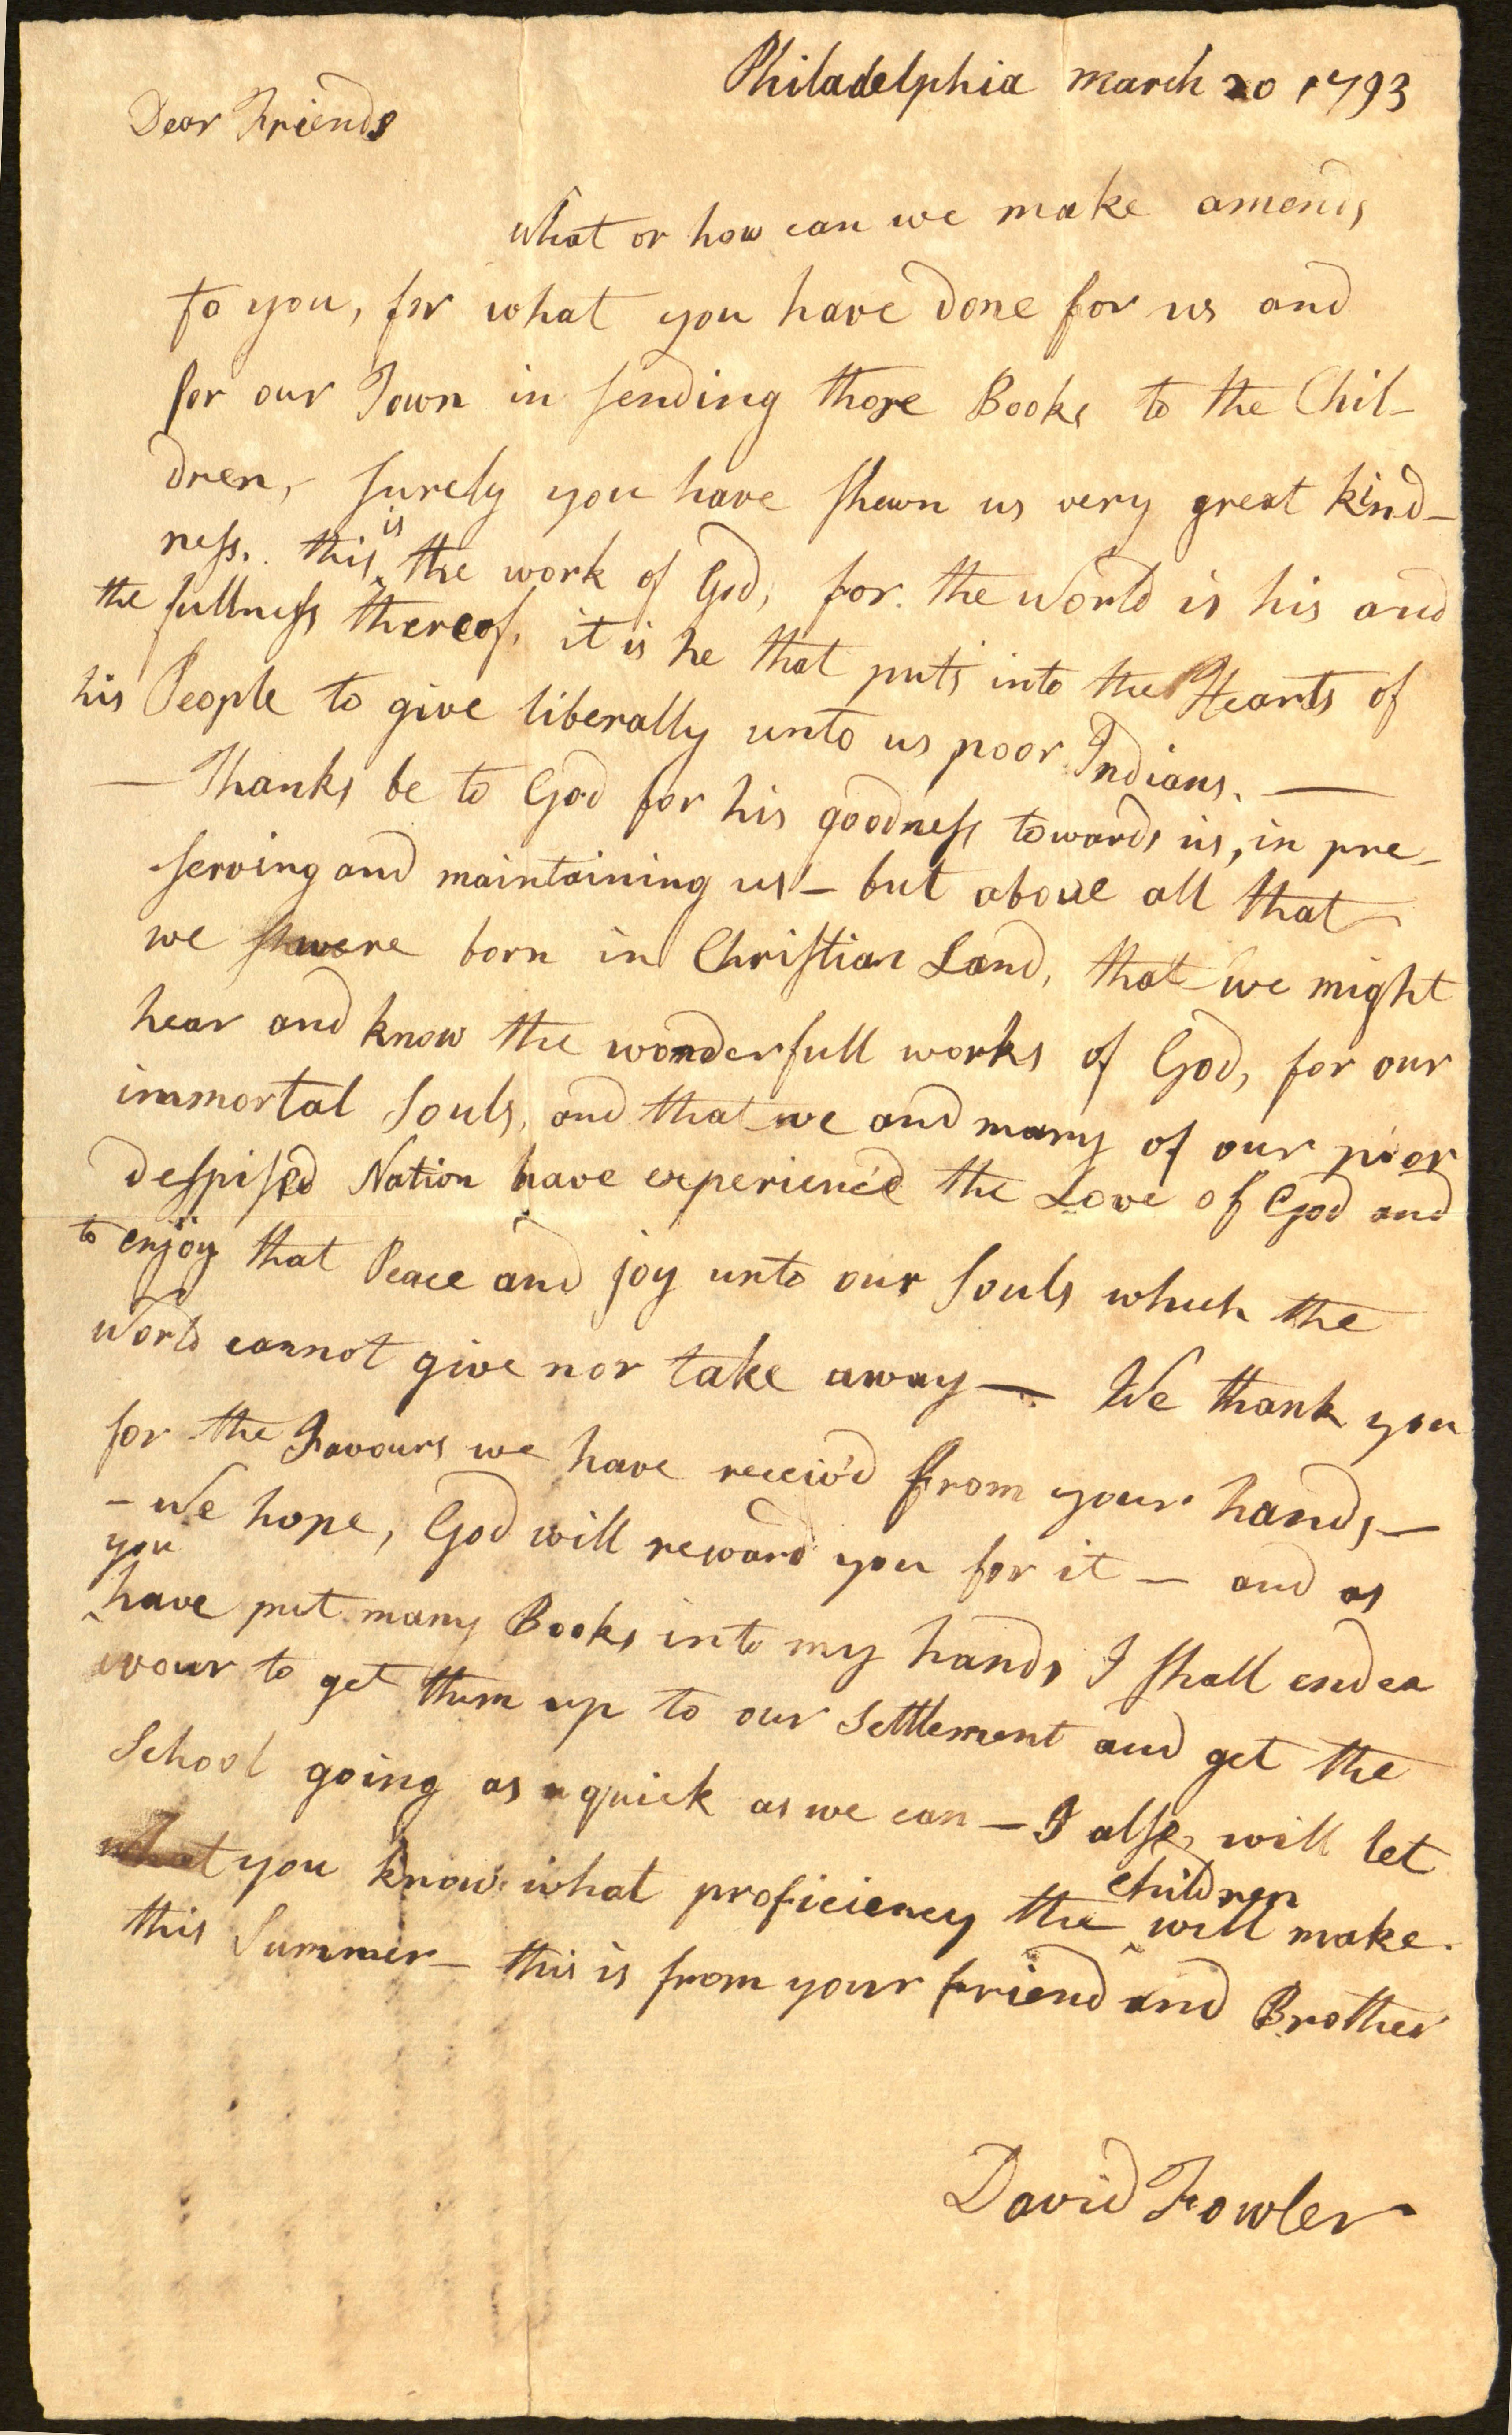 Philadelphia march 20 1793
Dear Friends
what or how can we make amends
to you, for what you have done for us and
for our Town in sending those Books to the Chil-
dren, surely you have shewn us very great kind-
ness. this is the work of God, for the World is his and
the fullness thereof, it is he that puts into the Hearts of
his People to give liberally unto us poor Indians. —
— Thanks be to God for his goodness towards us, in pre-
serving and maintaining us — but above all that
we were born in Christian Land, that we might
hear and know the wonderfull works of God, for our
immortal Souls, and that we and many of our poor
despised Nation have experienc'd the Love of God and
to enjoy that Peace and joy unto our Souls which the
World cannot give nor take away — We thank you
for the Favours we have receiv'd from your hands —
- We hope, God will reward you for it — and as
you
have put many Books into my hands I shall endea
vour to get them up to our Settlement and get the
School going as quick as we can — I also, will let
you know what proficiency the children will make
this Summer — this is from your friend and Brother
David Fowler